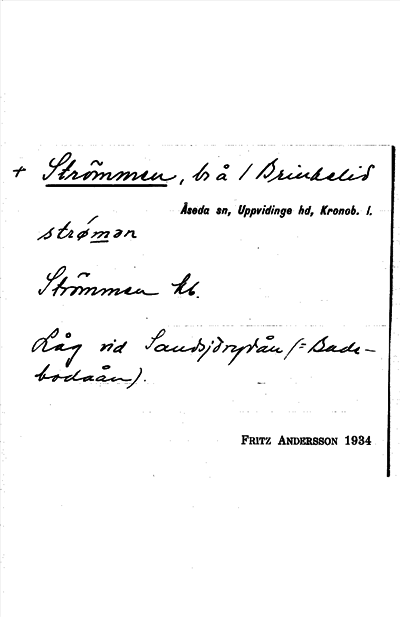 + Strömmen, br å / Brinkelid
Åseda sn, Uppvidinge hd, Kronob. l.
strǿmən
Strömmen kb.
Låg vid Sandsjörydån (= Bade-
bodaån).
FRITZ ANDERSSON 1934